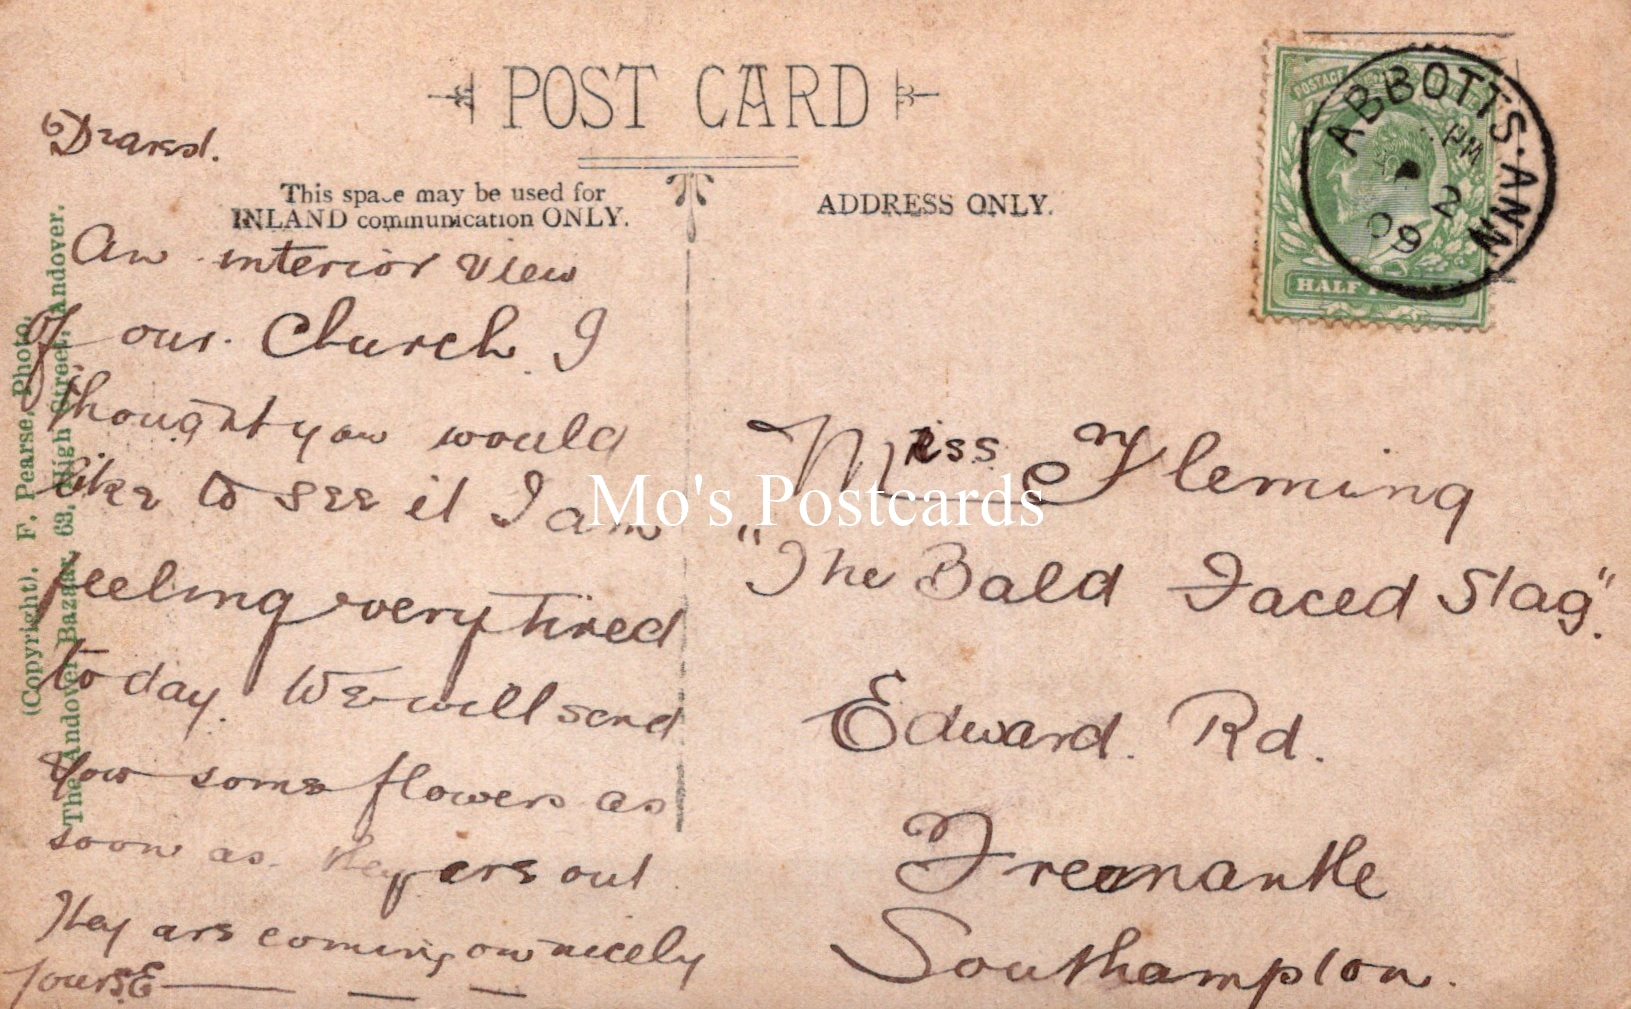 POST CARD
This space may be used for
INLAND communication ONLY.
ADDRESS ONLY.
Dearest.
An interior view
of our Church I
thought you would
like to see it I am
feeling very tired
to day. We will send
you some flowers as
soon as they are out
They are coming on nicely
Yours E
Miss Fleming
"The Bald Faced Stag".
Edward. Rd.
Freemantle
Southampton.
ABBOTTS·ANN
PM
2
09
POSTAGE
HALF
(Copyright). F. Pearse, Photo,
The Andover Bazaar, 63, High Street, Andover.
Mo's Postcards